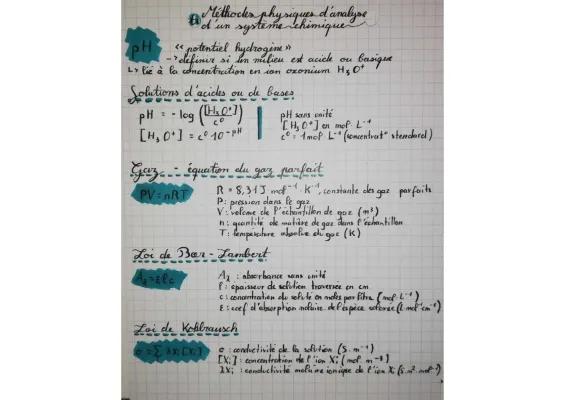 Méthodes physiques d'analyse
d'un système chimique
pH
"potentiel hydrogène"
-> définir si un milieu est acide ou basique
L> lié à la concentration en ion oxonium H₃O⁺
Solutions d'acides ou de bases
pH = - log ([H₃O⁺]/c⁰)
pH sans unité
[H₃O⁺] en mol·L⁻¹
[H₃O⁺] = c⁰·10⁻ᵖᴴ
c⁰ = 1 mol·L⁻¹ (concentrat° standard)
Gaz - équation du gaz parfait
PV = nRT
R = 8,31 J mol⁻¹·K⁻¹, constante des gaz parfaits
P: pression dans le gaz
V: volume de l'échantillon de gaz (m³)
n: quantité de matière de gaz dans l'échantillon
T: température absolue du gaz (K)
Loi de Beer-Lambert
Aλ = εlc
Aλ: absorbance sans unité
l: épaisseur de solution traversée en cm
c: concentration du soluté en moles par litre (mol·L⁻¹)
ε: coef d'absorption molaire de l'espèce colorée (L·mol⁻¹·cm⁻¹)
Loi de Kohlrausch
σ = Σ λXi [Xi]
σ: conductivité de la solution (S·m⁻¹)
[Xi]: concentration de l'ion Xi (mol·m⁻³)
λXi: conductivité molaire ionique de l'ion Xi (S·m²·mol⁻¹)